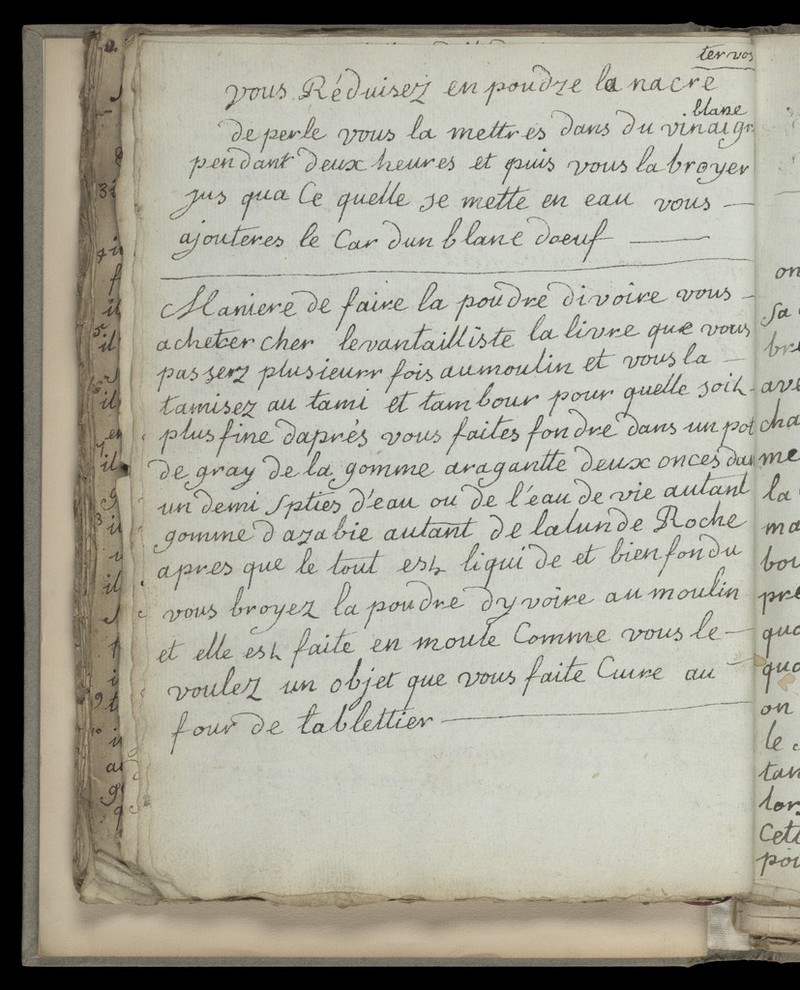 ter vos
vous Réduisez en poudre la nacre
de perle vous la mettres dans du vinaigr
blanc
pendant deux heures et puis vous la broyer
jus qua Ce quelle se mette en eau vous —
ajouteres le Car dun blanc doeuf —
Maniere de faire la poudre divoire vous -
acheter cher levantailliste la livre que vous
passerz plusieurr fois au moulin et vous la —
tamisez au tami et tambour pour quelle soit -
plus fine daprés vous faites fondre dans un pot
de gray de la gomme aragantte deux onces dan
un demi Spties d'eau ou de l'eau de vie autant
gomme d arabie autant de lalun de Roche
apres que le tout est liquide et bien fondu
vous broyez la poudre dyvoire au moulin
et elle est faite en moule Comme vous le —
voulez un objet que vous faite Cuire au —
four de tablettier —
on
sa
bre
ave
cha
me
la
ma
bou
pre
qua
qua
on
le
tan
lor
Cett
poi